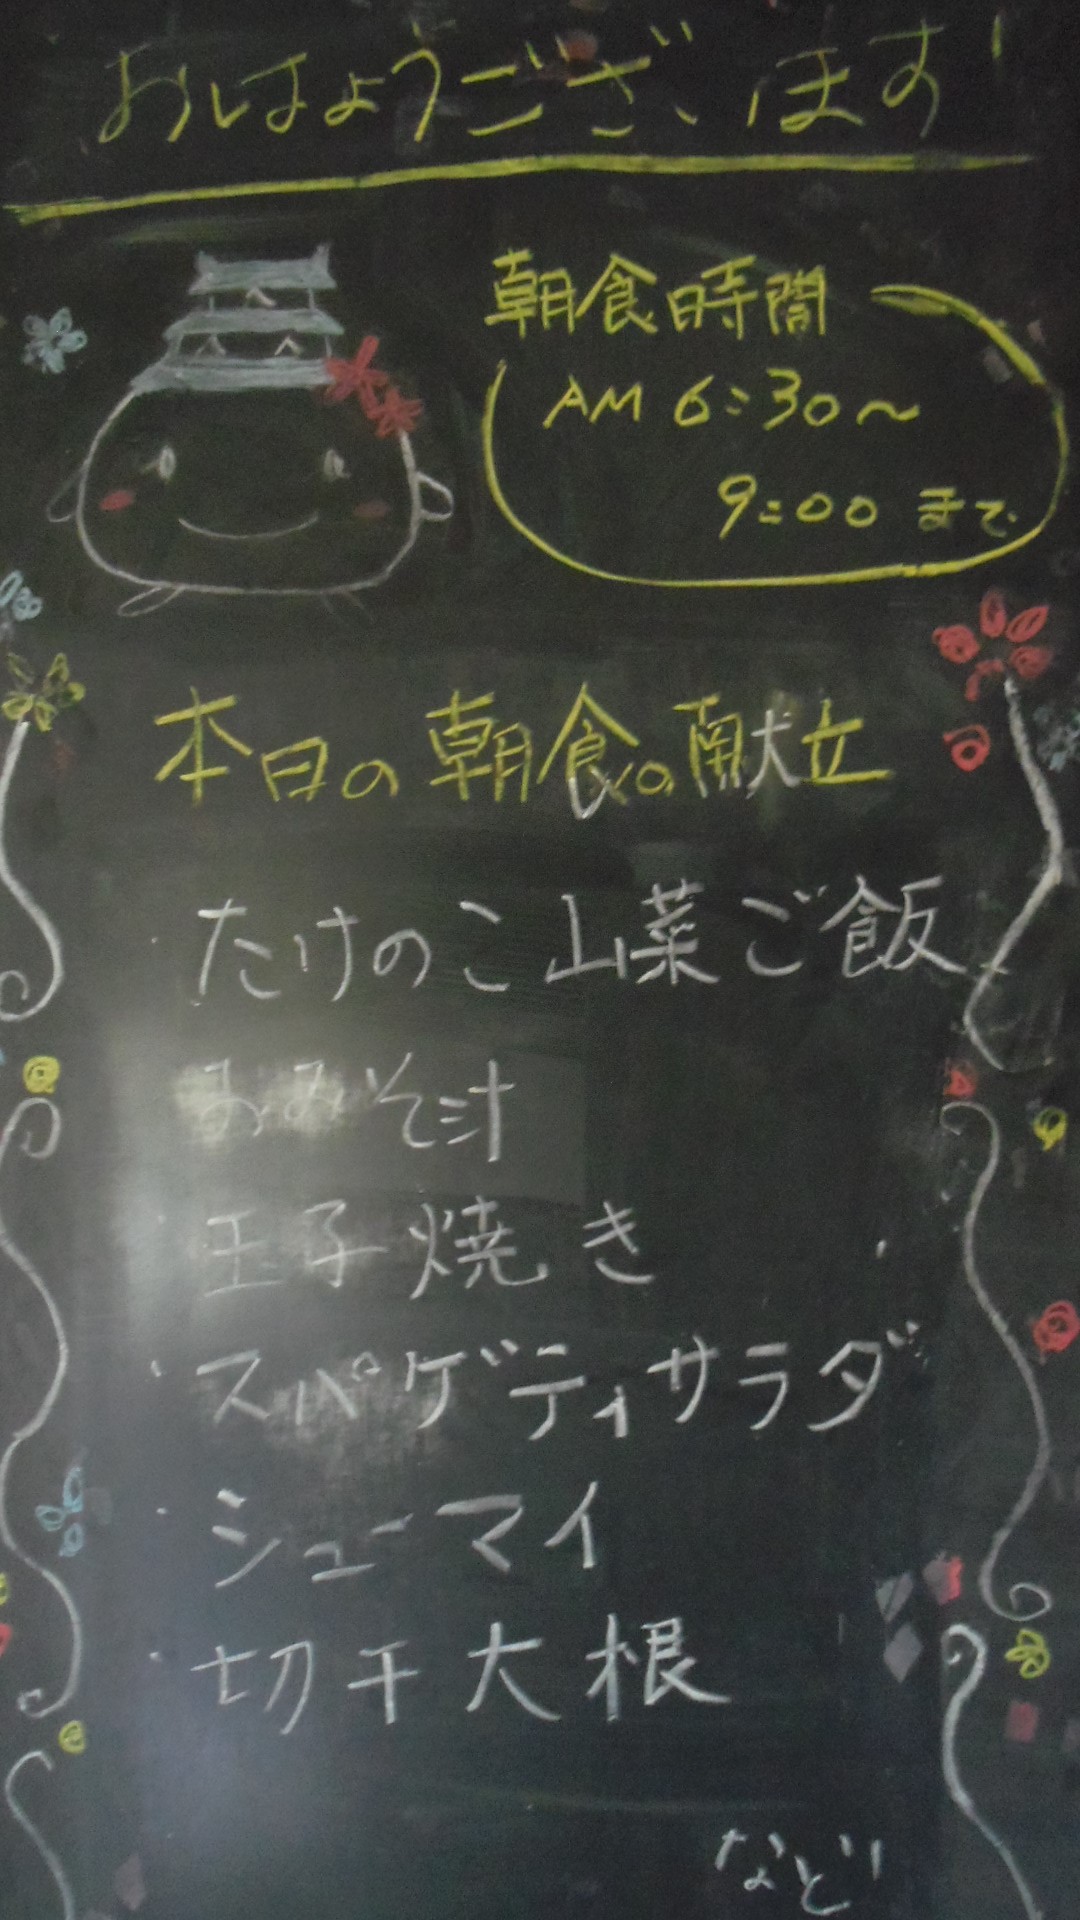 おはようございます!
朝食時間
AM 6:30〜
9:00 まで
本日の朝食の献立
・たけのこ山菜ご飯
おみそ汁
・玉子焼き
・スパゲティサラダ
・シューマイ
・切干大根
など!!